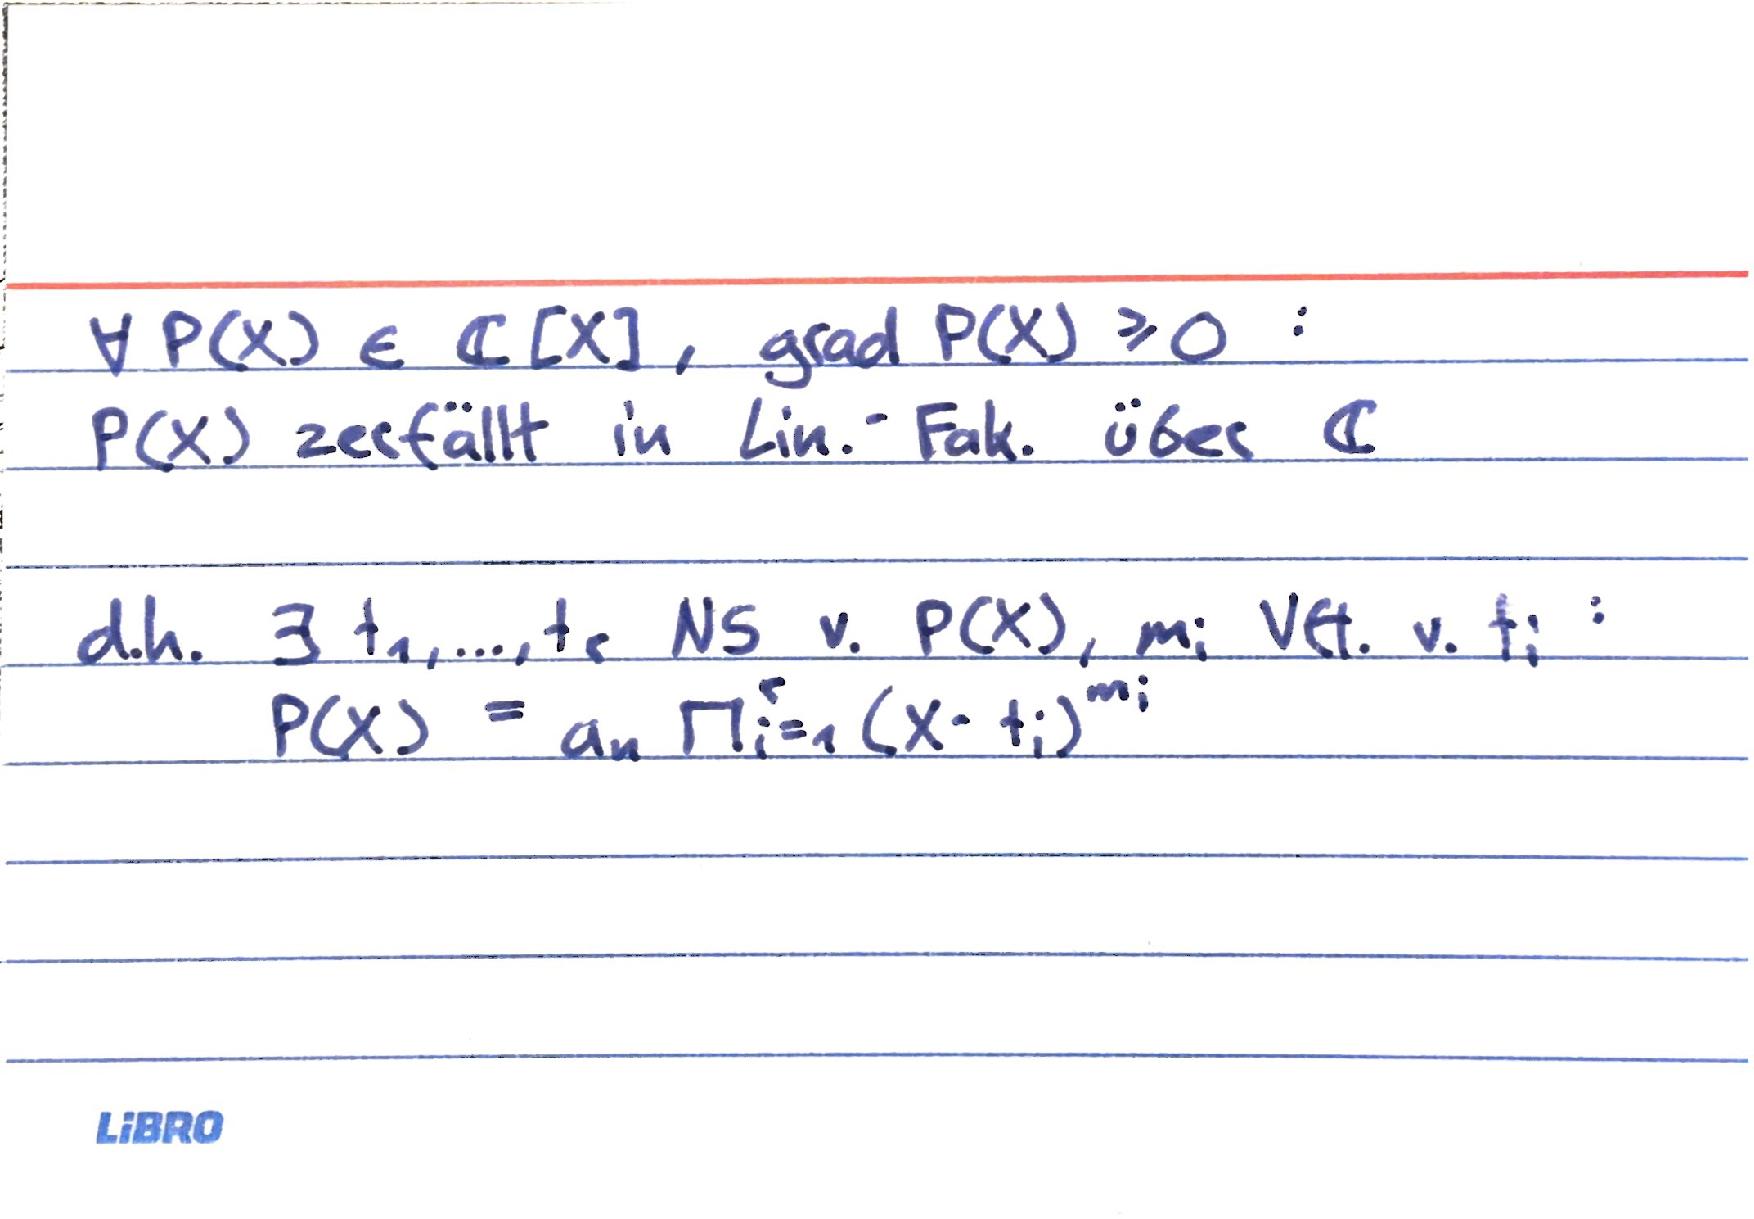 ∀ P(X) ∈ ℂ[X], grad P(X) ≥ 0 :
P(X) zerfällt in Lin.-Fak. über ℂ
d.h. ∃ t₁,...,tᵣ NS v. P(X), mᵢ Vft. v. tᵢ :
P(X) = aₙ ∏ʳᵢ₌₁ (X - tᵢ)^mᵢ
LiBRO